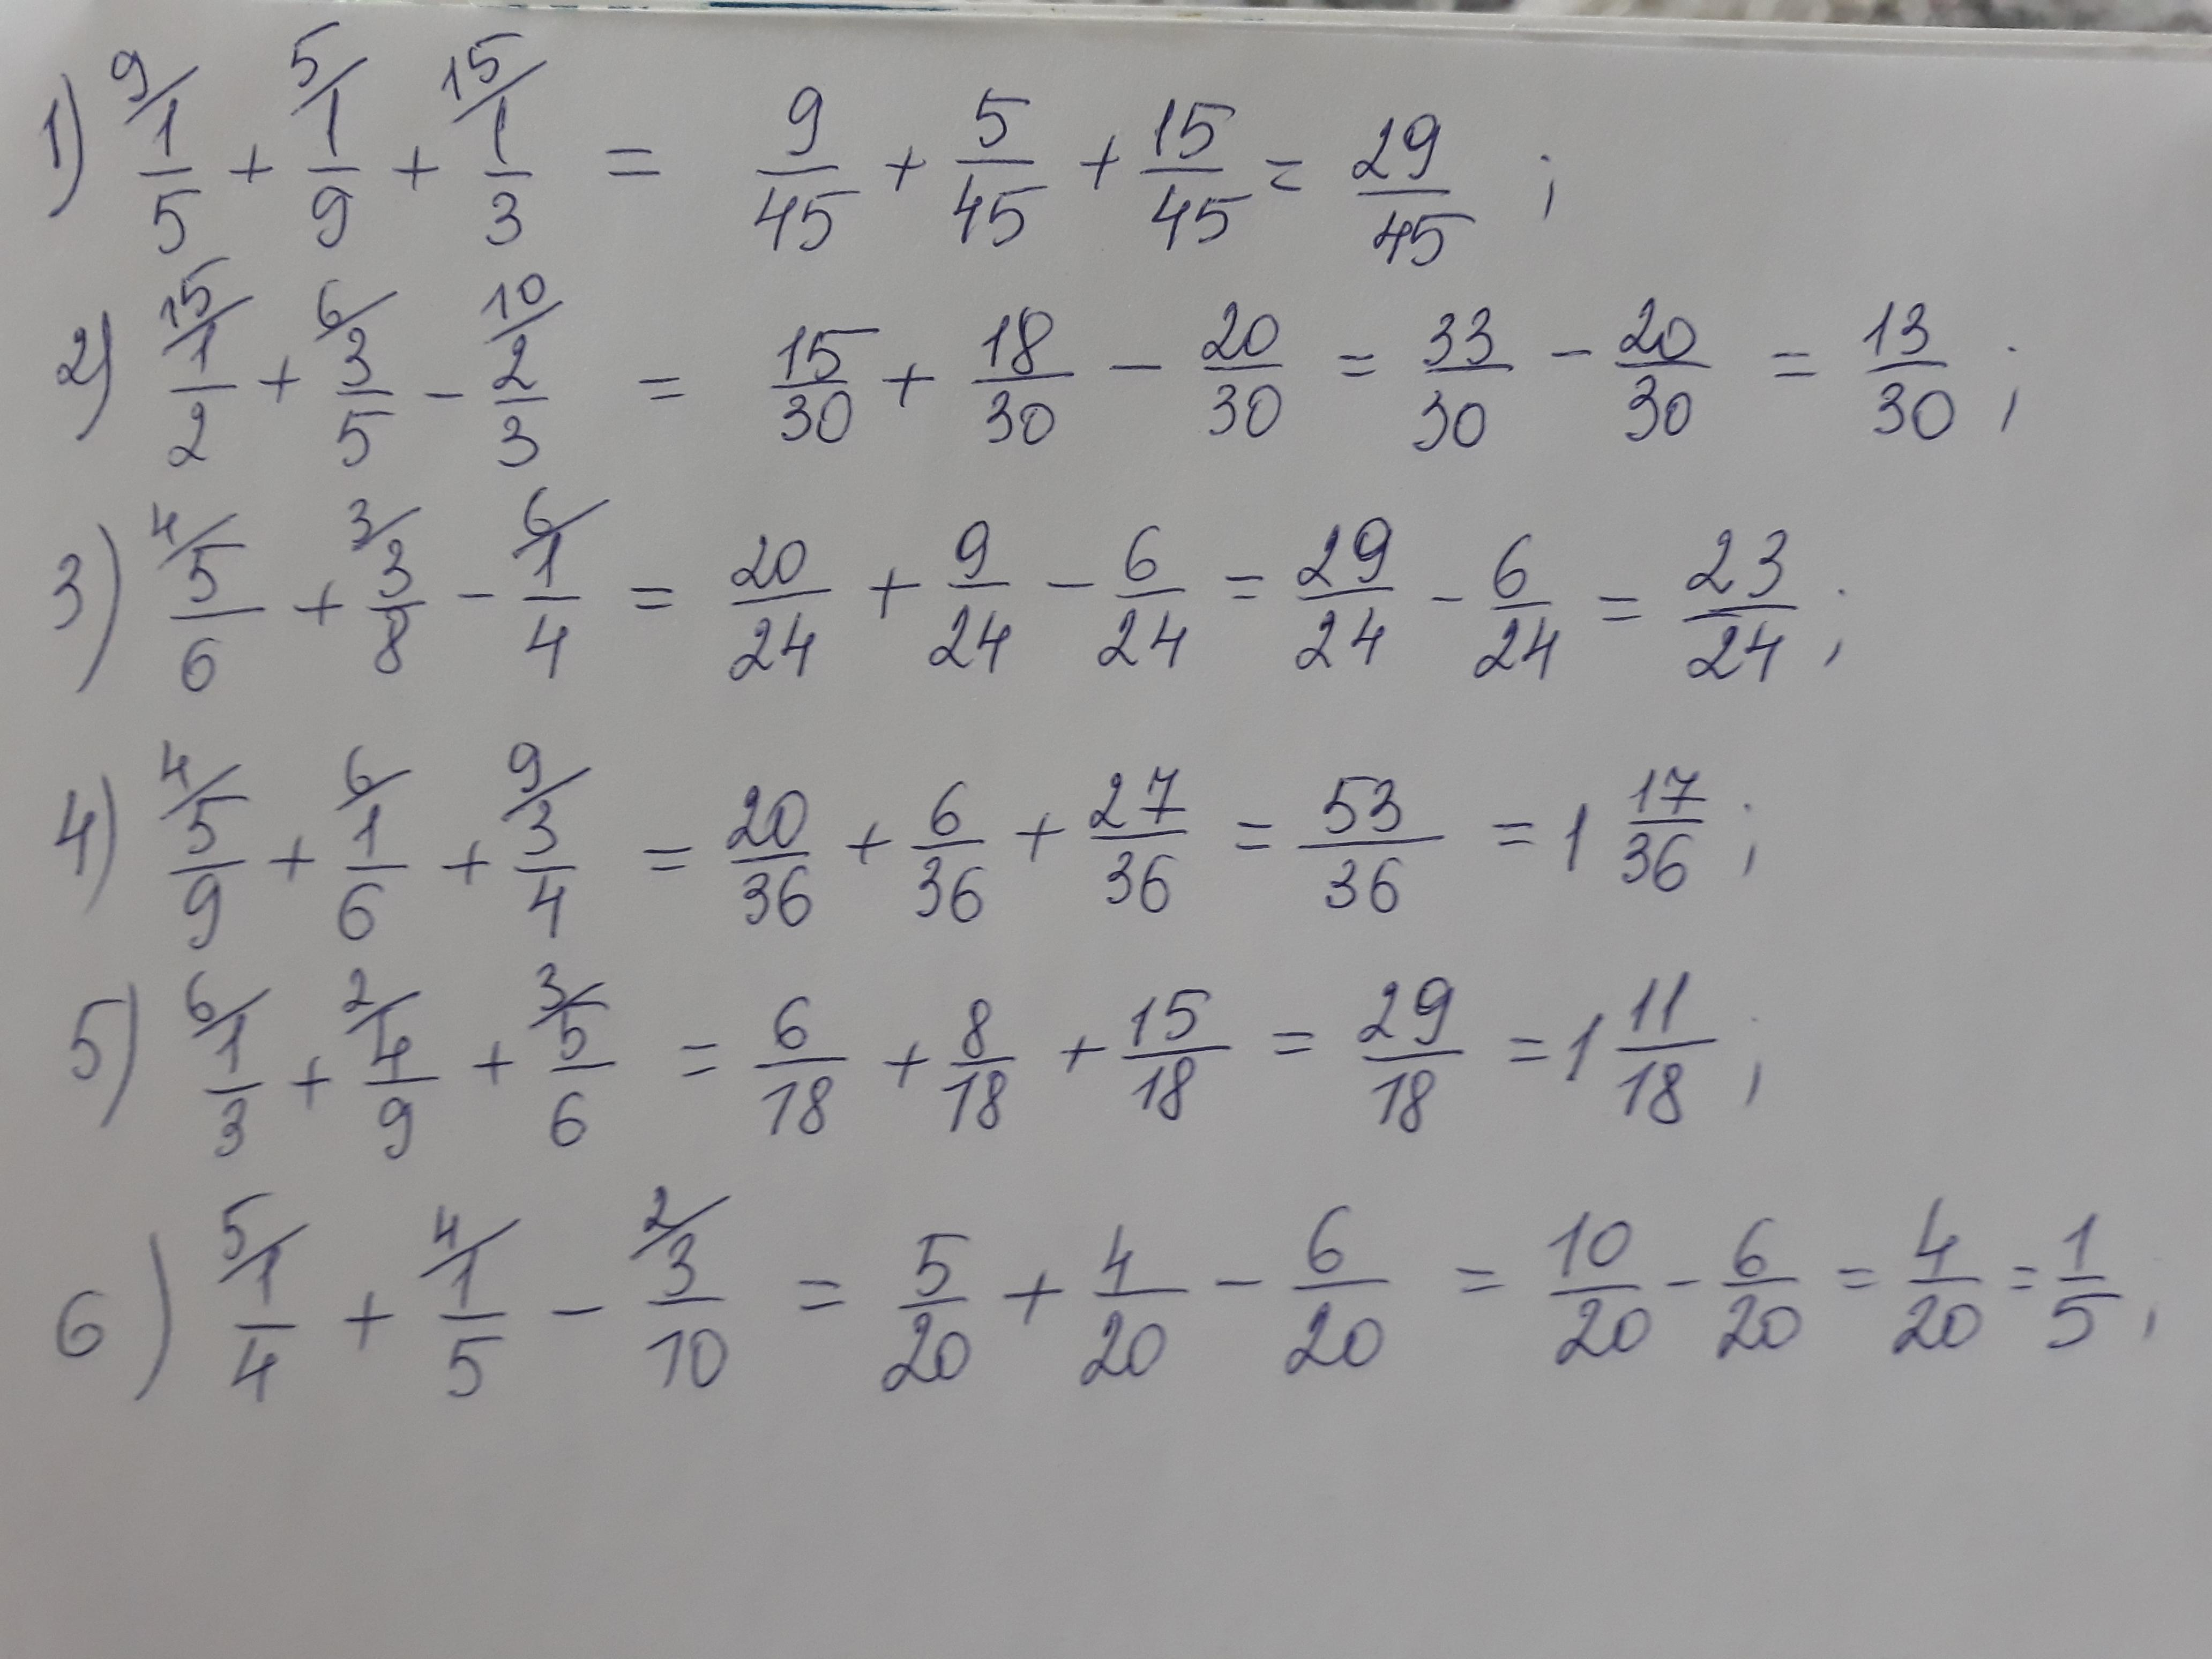 1) 9/ 1/5 + 5/ 1/9 + 15/ 1/3 = 9/45 + 5/45 + 15/45 = 29/45 ;
2) 15/ 1/2 + 6/ 3/5 - 10/ 2/3 = 15/30 + 18/30 - 20/30 = 33/30 - 20/30 = 13/30 ;
3) 4/ 5/6 + 3/ 3/8 - 6/ 1/4 = 20/24 + 9/24 - 6/24 = 29/24 - 6/24 = 23/24 ;
4) 4/ 5/9 + 6/ 1/6 + 9/ 3/4 = 20/36 + 6/36 + 27/36 = 53/36 = 1 17/36 ;
5) 6/ 1/3 + 2/ 4/9 + 3/ 5/6 = 6/18 + 8/18 + 15/18 = 29/18 = 1 11/18 ;
6) 5/ 1/4 + 4/ 1/5 - 2/ 3/10 = 5/20 + 4/20 - 6/20 = 10/20 - 6/20 = 4/20 = 1/5 ;